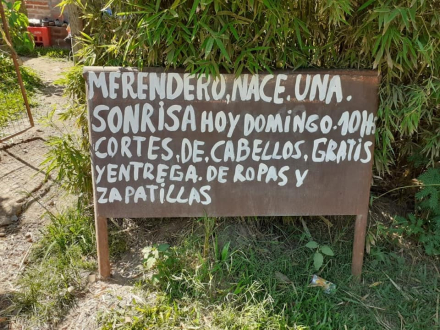 MERENDERO, NACE. UNA.
SONRISA HOY DOMINGO. 10Hs
CORTES, DE, CABELLOS, GRATIS
Y ENTREGA. DE ROPAS Y
ZAPATILLAS